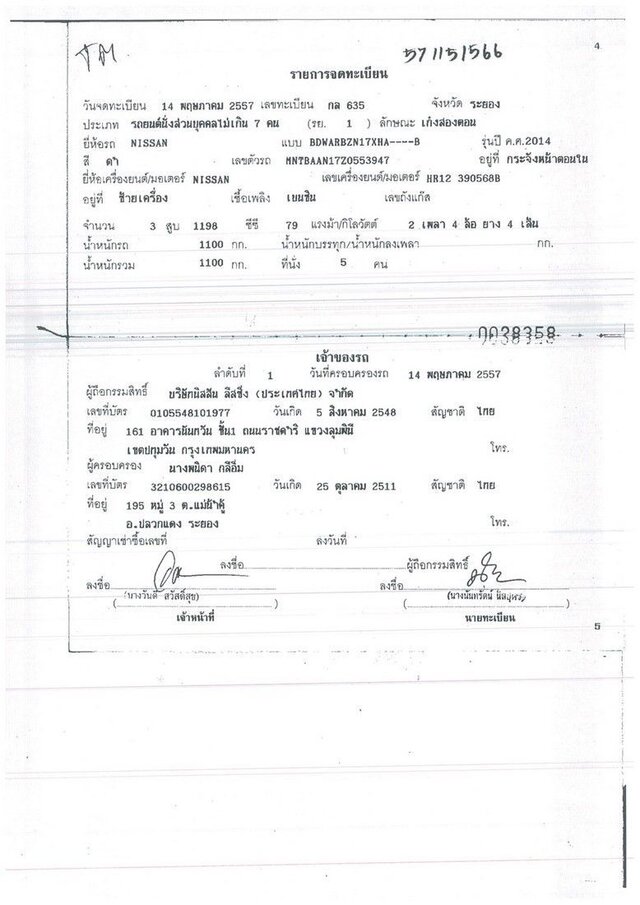 571151566
4
รายการจดทะเบียน
วันจดทะเบียน 14 พฤษภาคม 2557 เลขทะเบียน กล 635 จังหวัด ระยอง
ประเภท รถยนต์นั่งส่วนบุคคลไม่เกิน 7 คน (รย. 1 ) ลักษณะ เก๋งสองตอน
ยี่ห้อรถ NISSAN แบบ BDWARBZN17XHA----B รุ่นปี ค.ศ.2014
สี ดำ เลขตัวรถ MNTBAAN17Z0553947 อยู่ที่ กระจังหน้าตอนใน
ยี่ห้อเครื่องยนต์/มอเตอร์ NISSAN เลขเครื่องยนต์/มอเตอร์ HR12 390568B
อยู่ที่ ซ้ายเครื่อง เชื้อเพลิง เบนซิน เลขถังแก๊ส
จำนวน 3 สูบ 1198 ซีซี 79 แรงม้า/กิโลวัตต์ 2 เพลา 4 ล้อ ยาง 4 เส้น
น้ำหนักรถ 1100 กก. น้ำหนักบรรทุก/น้ำหนักลงเพลา กก.
น้ำหนักรวม 1100 กก. ที่นั่ง 5 คน
0038358
เจ้าของรถ
ลำดับที่ 1 วันที่ครอบครองรถ 14 พฤษภาคม 2557
ผู้ถือกรรมสิทธิ์ บริษัทนิสสัน ลีสซิ่ง (ประเทศไทย) จำกัด
เลขที่บัตร 0105548101977 วันเกิด 5 สิงหาคม 2548 สัญชาติ ไทย
ที่อยู่ 161 อาคารนันทวัน ชั้น1 ถนนราชดำริ แขวงลุมพินี
เขตปทุมวัน กรุงเทพมหานคร โทร.
ผู้ครอบครอง นางพนิดา กลีอิ่ม
เลขที่บัตร 3210600298615 วันเกิด 25 ตุลาคม 2511 สัญชาติ ไทย
ที่อยู่ 195 หมู่ 3 ต.แม่น้ำคู้
อ.ปลวกแดง ระยอง โทร.
สัญญาเช่าซื้อเลขที่ ลงวันที่
ลงชื่อ ผู้ถือกรรมสิทธิ์
ลงชื่อ ลงชื่อ
(นางวันดี สวัสดิ์สุข) (นางนันทรัตน์
เจ้าหน้าที่ นายทะเบียน
5